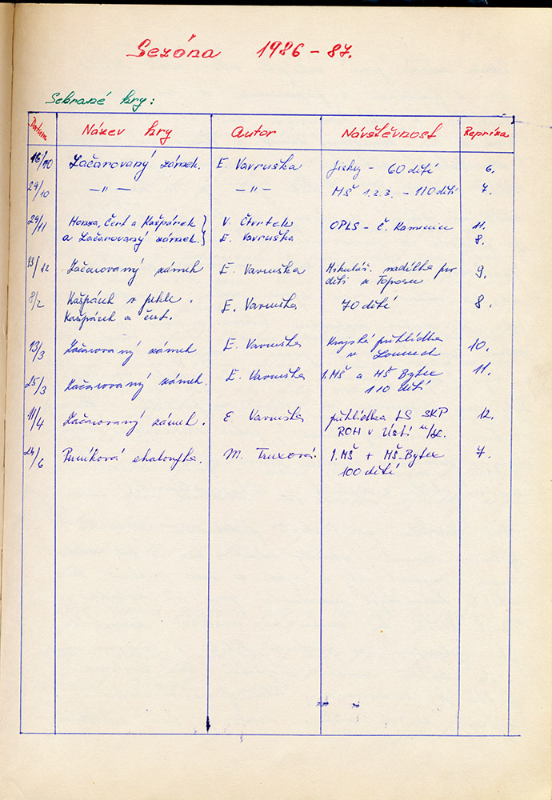 Sezóna 1986-87.
Sehrané hry:
Datum Název hry Autor Návštěvnost Repríza
16/10 Začarovaný zámek. E. Vavruška Jichy - 60 dětí 6.
24/10 -"- -"- MŠ 1.2.3. - 110 dětí 7.
29/11 Honza, Čert a Kašpárek } V. Čtvrtek OPLS - Č. Kamenice 11.
a Začarovaný zámek. } E. Vavruška 8.
13/12 Začarovaný zámek E. Vavruška Mikuláš. nadílka pro 9.
dětí z Toposu
8/2 Kašpárek v pekle. E. Vavruška 70 dětí 8.
Kašpárek a čert.
13/3 Začarovaný zámek E. Vavruška Krajská přehlídka 10.
v Lounech
25/3 Začarovaný zámek. E. Vavruška 1. MŠ a MŠ Bytex 11.
110 dětí
11/4 Začarovaný zámek. E Vavruška přehlídka LS SKP 12.
ROH v Ústí n/L.
24/6 Perníková chaloupka. M. Truxová. 1. MŠ + MŠ-Bytex 7.
100 dětí